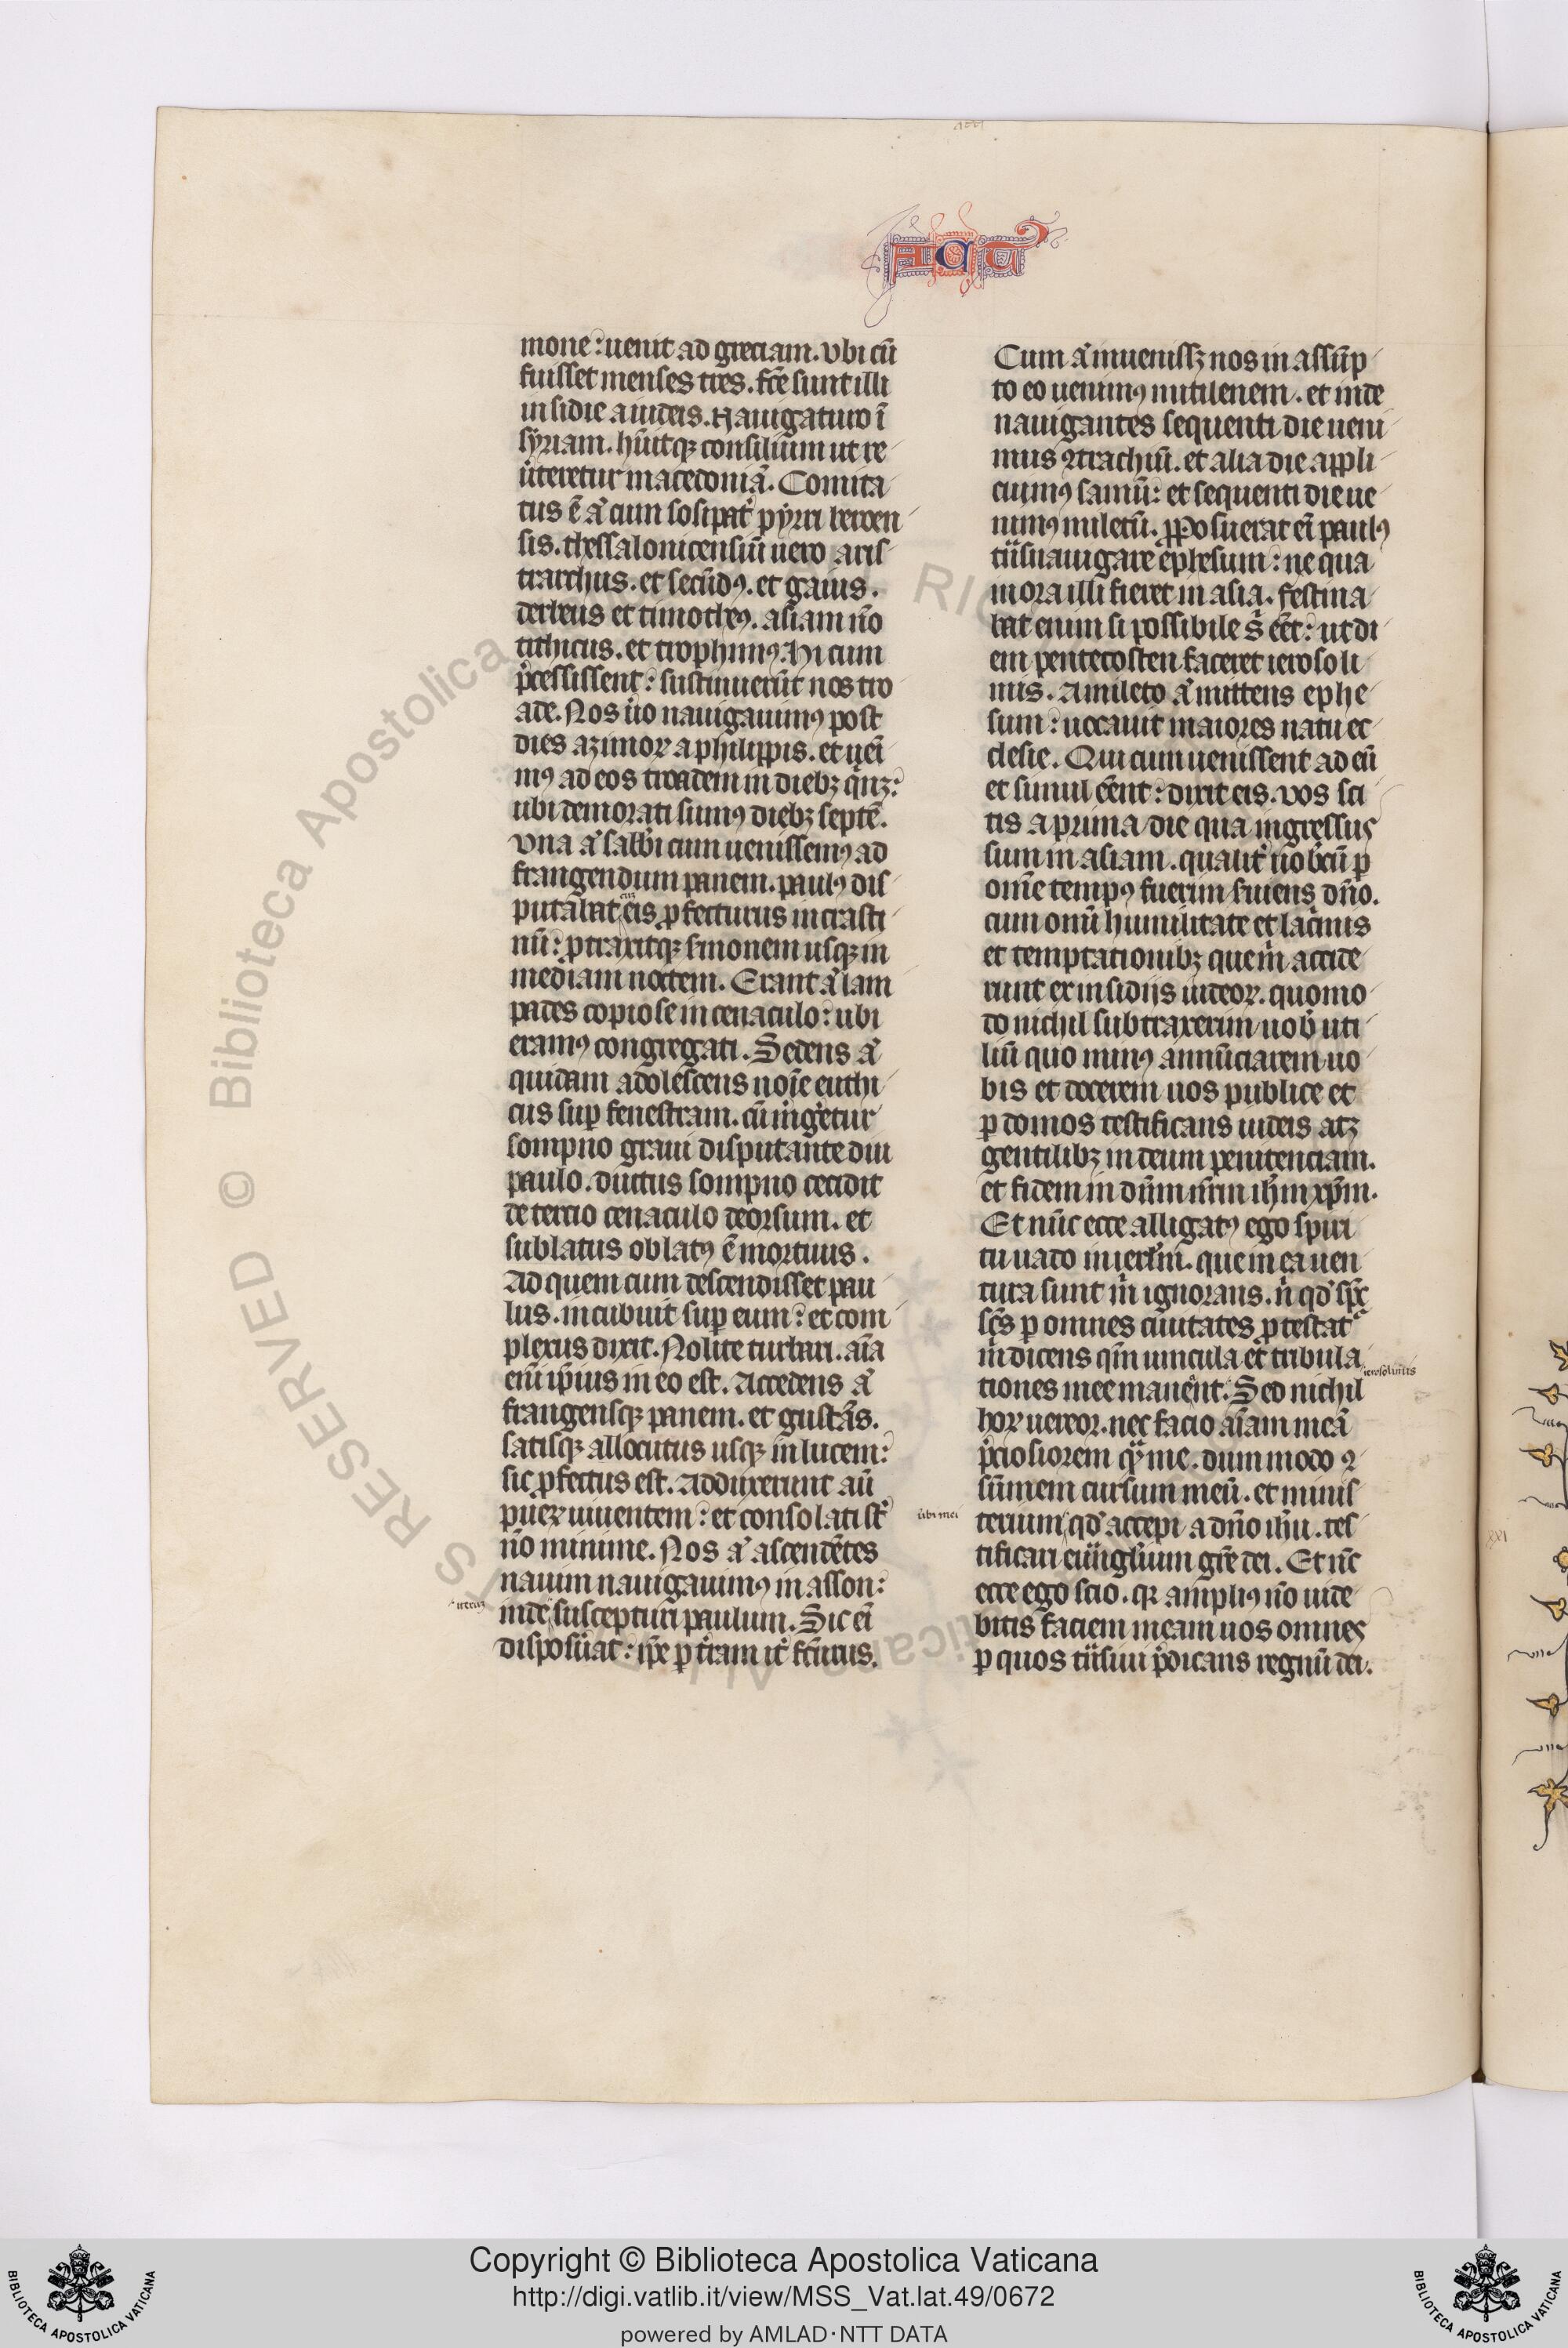 ACT᾽
mone: uenit ad greciam. vbi cū
fuisset menses tres. fc̄e sunt illi
insidie a iudeis. nauigaturo ī
sẏriam. hūitqꝫ consilium ut re
ũteretur macedoniā. Comita
tus ē aͥ cum sosipat᾽ pẏrri beroen
sis. thessalonicensiū uero aris
trarchus. et secūdꝰ. et gaius.
derbeus et timotheꝰ. asiani ũo
tithicus. et trophimꝰ. Hi cum
p̃cessissent: sustinuerūt nos tro
ade. Nos ũo nauigauimꝰ post
dies azimoꝝ a philippis. et ueī
mꝰ ad eos troadem in diebꝫ qͥnqꝫ:
ubi demorati sumꝰ diebꝫ septē.
vna aͥ sabbi cum uenissemꝰ ad
frangendum panem. paulꝰ dis
putabat eis ꝓfecturus in crasti
nū: ꝓtraxitqꝫ s̃monem usqꝫ in
mediam noctem. Erant aͥ lam
pades copiose in cenaculo: ubi
eramꝰ congregati. Sedens aͥ
quidam adolescens noīe euthi
cus suꝑ fenestram. cū m̃geretur
sompno graui disputante diu
paulo. ductus sompno cecidit
de tercio cenaculo deorsum. et
sublatus oblatꝰ ē mortuus.
Ad quem cum descendisset pau
lus. incubuit suꝑ eum: et com
plexus dixit. Nolite turbari. aīa
enī ip̄ius in eo est. Accedens aͥ
frangensqꝫ panem. et gustās.
satisqꝫ allocutus usqꝫ in lucem:
sic ꝓfectus est. Adduxerunt aū
pueꝝ uiuentem: et consolati st̃
ñō minime. Nos aͥ ascendētes
nauim nauigauimꝰ in asson:
inde suscepturi paulum. Sic eī
disposũat: ip̄e ꝑ t̃ram it᾽ fc̄urus.
Cum aͥ inuenissꝫ nos in assūp
to eo uenimꝰ mitilenem. et inde
nauigantes sequenti die ueni
mus ꝯtrachiū. et alia die appli
cuimꝰ samū: et sequenti die ue
nimꝰ miletū. ꝓposuerat eī paulꝰ
tñsnauigare ephesum: ne qua
mora illi fieret in asia. festina
bat enim si possibile s̃ eēt: ut di
em pentecosten faceret ierosoli
mis. A mileto aͥ mittens ephe
sum: uocauit maiores natu ec
clesie. Qui cum uenissent ad eū
et simul eēnt: dixit eis. vos sci
tis a prima die qua ingressus
sum in asiam. qualit᾽ uobcū ꝑ
omē tempꝰ fuerim s̃uiens dño.
cum omī humilitate et lacͥmis
et temptationibꝫ que m̃ accide
runt ex insidijs iudeoꝝ. quomo
do nichil subtraxerim uob̃ uti
liū quo minꝰ annūciarem uo
bis et docerem uos publice et
ꝑ domos testificans iudeis atꝫ
gentilibꝫ in deum penitenciam.
et fidem in dūm nr̄m ih̄m xp̄m.
Et nūc ecce alligatꝰ ego spiri
tu uado in ierl̄m. que in ea uen
tura sunt m̃ ignorans. nͥ qd᾽ sp̄c
sc̄s ꝑ omnes ciuitates ꝓtestat᾽
m̃ dicens qm̄ uincula et tribula
tiones mee manēnt. Sed nichil
hoꝝ uereor. nec facio aīam meā
p̃ciosiorem qͣme. dum modo ꝯ
sūmem cursum meū. et minis
terium qd᾽ accepi a dño ih̄u. tes
tificari euũglium gr̄e dei. Et nūc
ecce ego scio. qꝛ amplius ñō uide
bitis faciem meam uos omnes
ꝑ quos tñsiui p̃dicans regnū dei.
ierosolimis
Copyright © Biblioteca Apostolica Vaticana
http://digi.vatlib.it/view/MSS_Vat.lat.49/0672
powered by AMLAD·NTT DATA
BIBLIOTECA APOSTOLICA VATICANA
BIBLIOTECA APOSTOLICA VATICANA